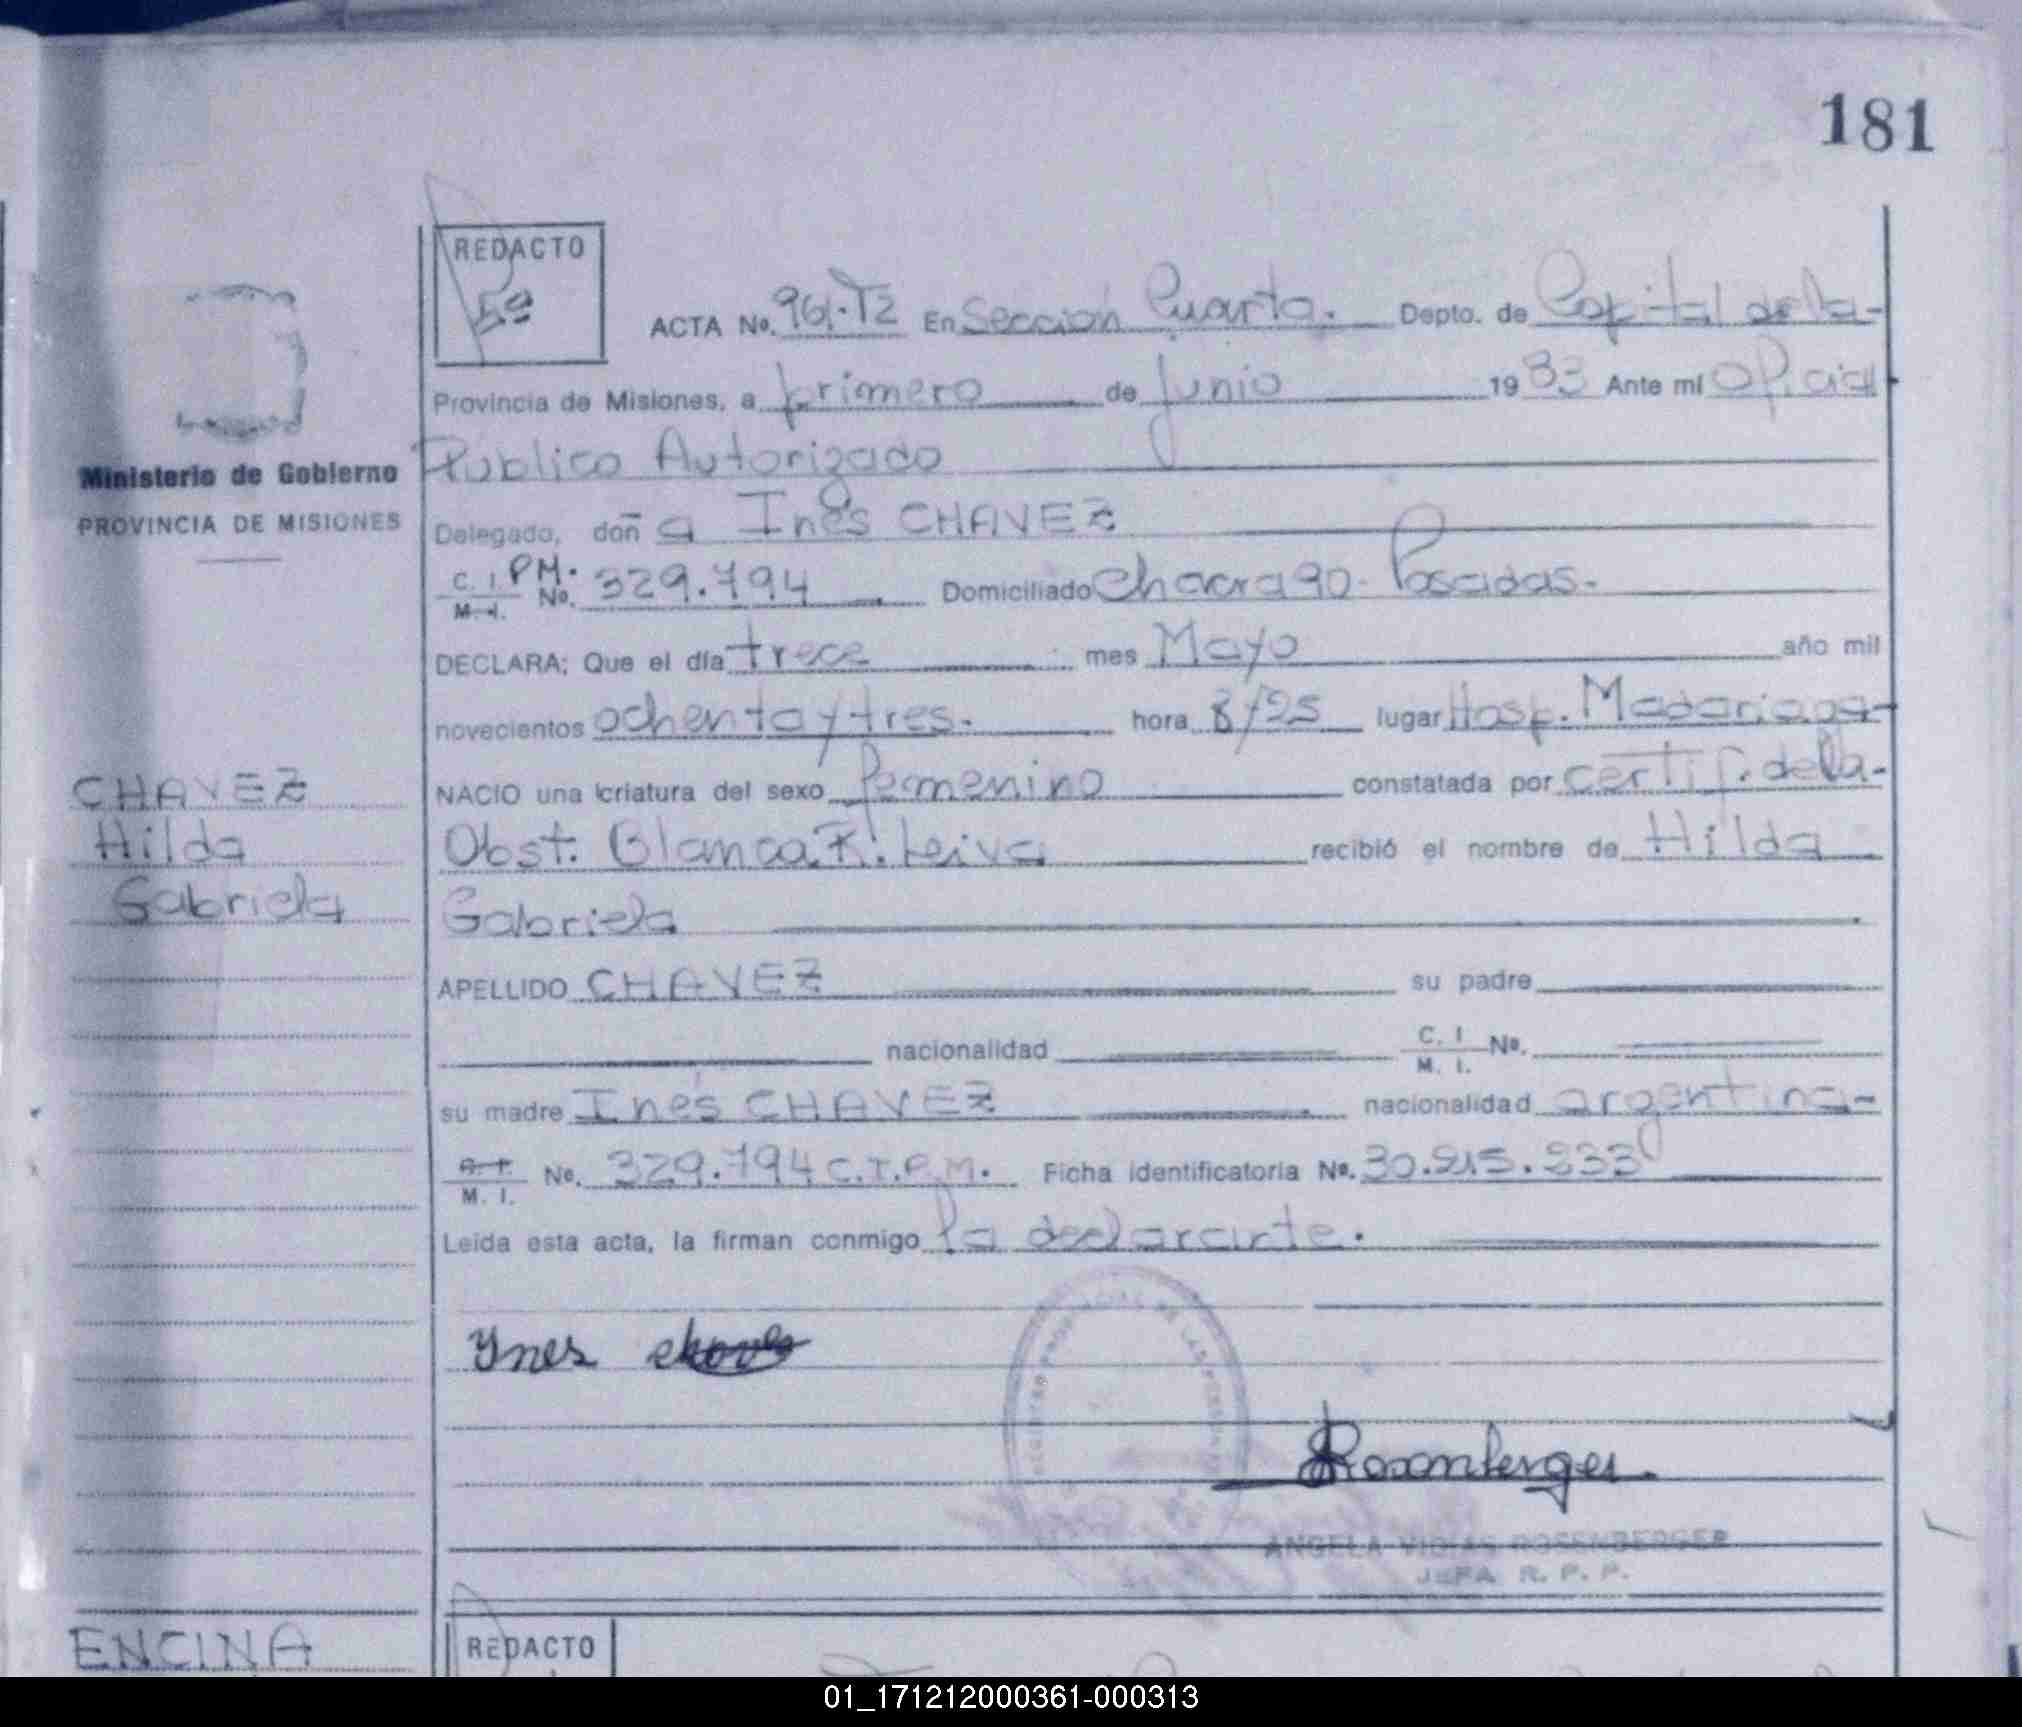 181
REDACTO
5ª
ACTA No. 961.T2 En Sección Cuarta. Depto. de Capital de la-
Provincia de Misiones, a primero de Junio 1983 Ante mí Oficial
Ministerio de Gobierno
PROVINCIA DE MISIONES
Público Autorizado
Delegado, doña Inés CHAVEZ
C. I. PM.
M. I. No. 329.794 Domiciliado Chacra 90- Posadas.
DECLARA; Que el día trece mes Mayo año mil
novecientos ochenta y tres. hora 8/25 lugar Hosp. Madariaga-
CHAVEZ
Hilda
Gabriela
NACIO una criatura del sexo femenino constatada por certif. de la-
Obst. Blanca R. Leiva recibió el nombre de Hilda
Gabriela
APELLIDO CHAVEZ su padre
nacionalidad C. I. M. I. No.
su madre Inés CHAVEZ nacionalidad argentina-
M. I. No. 329.794 C.I.P.M. Ficha identificatoria No. 30.215.233
Leída esta acta, la firman conmigo la declarante.
Ynes
Rosenberger
ANGELA ROSENBERGER
JEFA R. P. P.
ENCINA
REDACTO
01_171212000361-000313